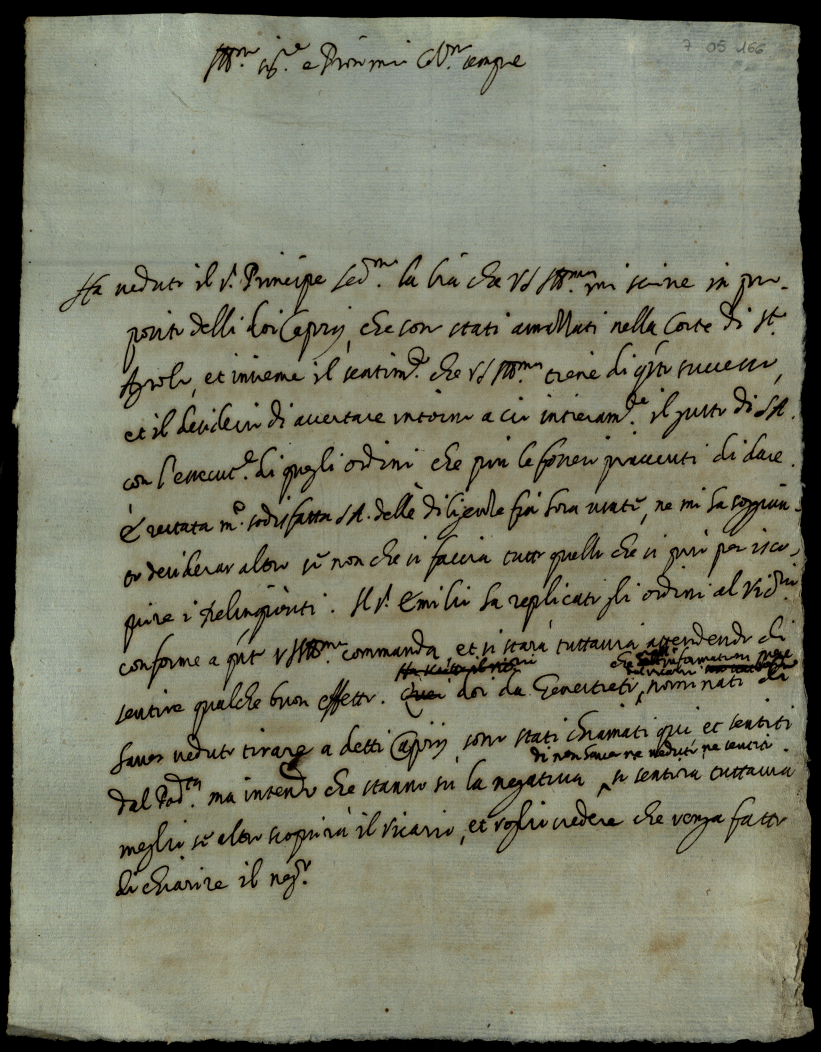 7 05 166
Ill.mo sig.re e Pron mio Col.mo sempre
Ha veduto il s.r Principe Ser.mo la lra che VS Ill.ma mi scrive in pro-
posito delli doi Caprij, che son stati amazzati nella Corte di S.t
Agnolo, et insieme il sentim.to che VS Ill.ma tiene di q.sto successo,
et il desiderio di accertare intorno a ciò intieram.te il gusto di SA.
con l'essecut.e di quegli ordini che più le fossero piacciuti di dare.
È restata m.o sodisfatta SA. delle diligenze fin hora usate, ne mi ha soggiun-
to desiderar altro se non che si faccia tutto quello che si può per isco-
prire i delinquenti. Il s.r Emilio ha replicati gli ordini al Vic.rio
conforme a q.to VS Ill.ma commanda et si starà tuttavia attendendo di
sentire qualche buon effetto. Quei doi da Genestreto, nominati di
haver veduto tirare a detti Caprij, sono stati chiamati qui et sentiti
di non haver ne veduto, ne sentito
dal Pod.stà, ma intendo che stanno su la negativa si sentirà tuttavia
meglio se altro scoprirà il Vicario, et voglio credere che venga fatto
di chiarire il neg.o